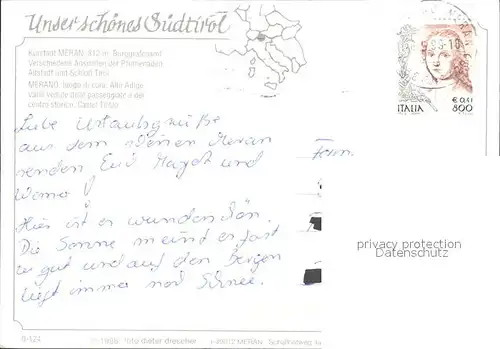 Unser schönes Südtirol
Kurstadt MERAN, 312 m. Burggrafenamt
Verschiedene Ansichten der Promenaden
Altstadt und Schloß Tirol
MERANO, luogo di cura, Alto Adige
varie vedute delle passeggiate e del
centro storico, Castel Tirolo
ITALIA
€ 0,41
800
Liebe Urlaubsgrüße
aus dem schönen Meran
senden Euch Magdt und
Werner!
Fam.
Hier ist es wunderschön.
Die Sonne meint es fast
zu gut und auf den Bergen
liegt immer noch Schnee.
privacy protection
Datenschutz
0-124
© 1998 foto dieter drescher
I-39012 MERAN